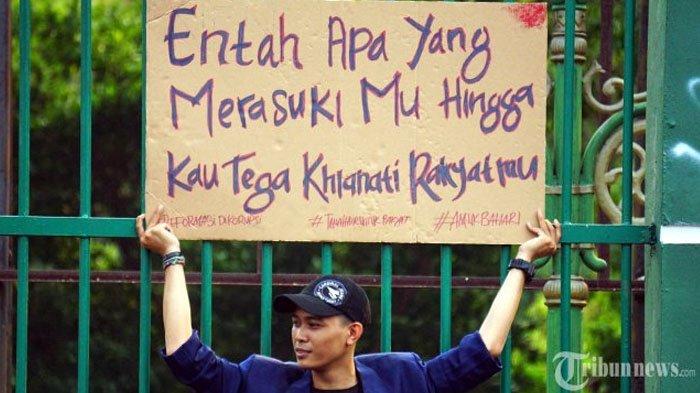 Entah Apa Yang
Merasuki Mu Hingga
Kau Tega Khianati Rakyatmu
#REFORMASI DIKORUPSI
#AMUK BAHARI
Tribunnews.com